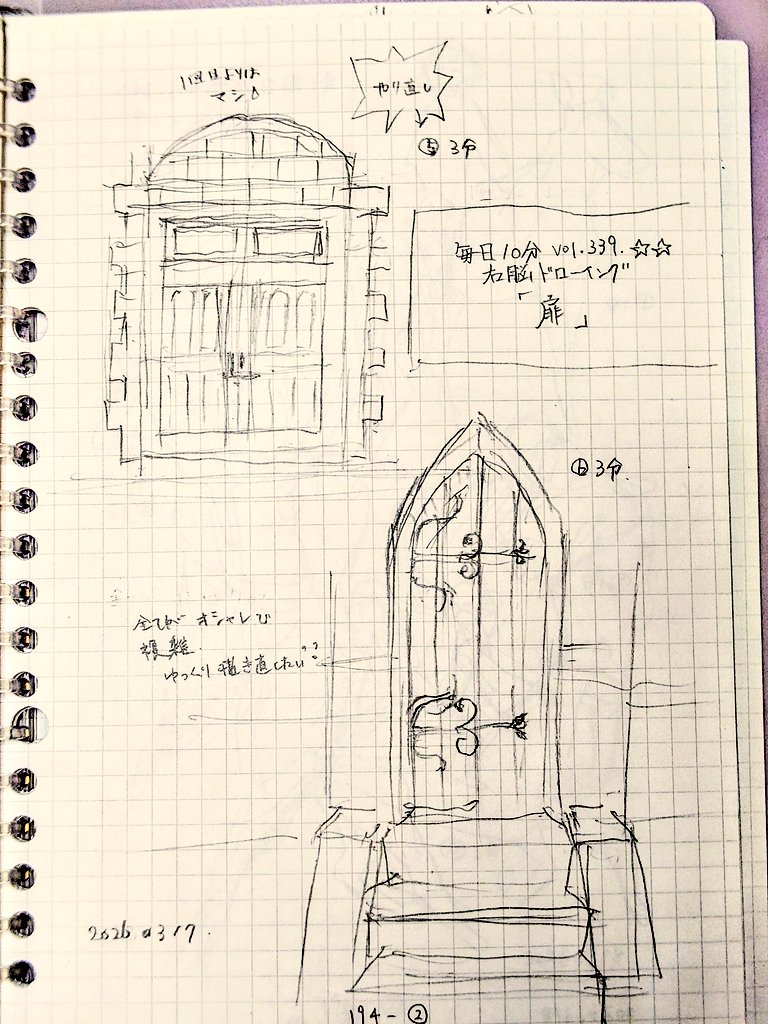 1回目よりは
マシ♪
やり直し
⑤ 3分
毎日10分 vol.339. ☆☆
右脳ドローイング
「扉」
⑥ 3分.
全てがオシャレで
複雑.
ゆっくり描き直したい??
2026 0317.
194-②